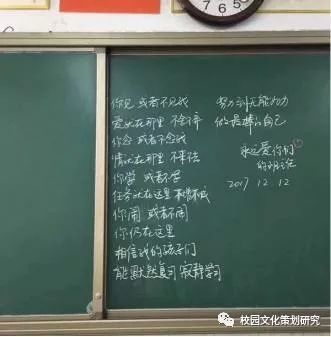 你见 或者不见我
爱就在那里 不舍弃
你念 或者不念我
情就在那里 不来去
你学 或者不学
任务就在这里 不减
你闹 或者不闹
你仍在这里
相信我的孩子们
能默然复习 寂静学习
努力到无能为力
做最棒的自己
永远爱你们
的班主任
2017 12 12
校园文化策划研究